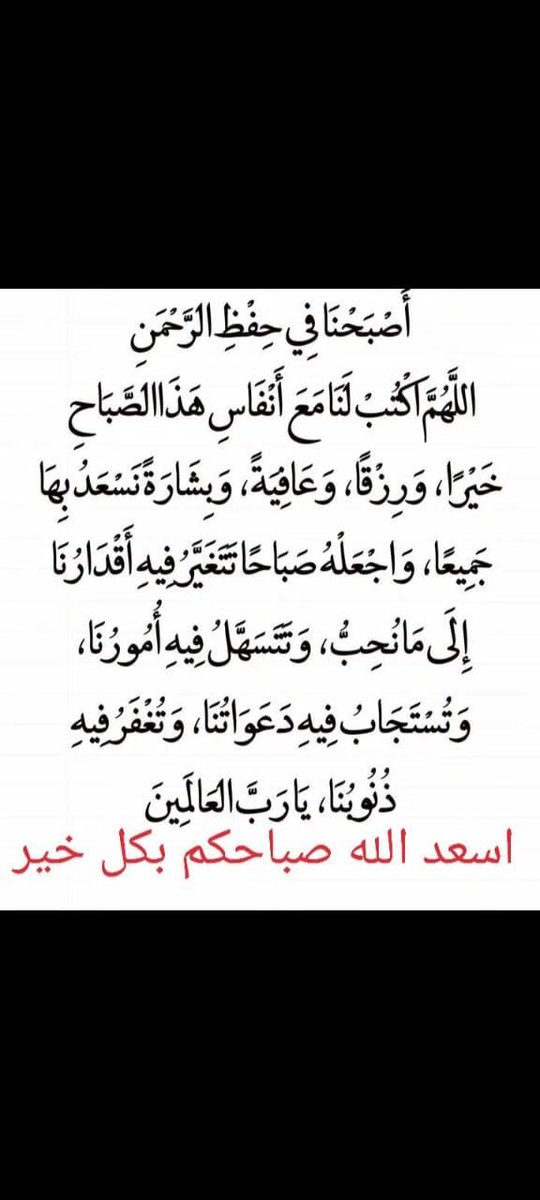 أَصْبَحْنَا فِي حِفْظِ الرَّحْمَنِ
اللَّهُمَّ اكْتُبْ لَنَا مَعَ أَنْفَاسِ هَذَا الصَّبَاحِ
خَيْرًا، وَرِزْقًا، وَعَافِيَةً، وَبِشَارَةً نَسْعَدُ بِهَا
جَمِيعًا، وَاجْعَلْهُ صَبَاحًا تَتَغَيَّرُ فِيهِ أَقْدَارُنَا
إِلَى مَا نُحِبُّ، وَتَتَسَهَّلُ فِيهِ أُمُورُنَا،
وَتُسْتَجَابُ فِيهِ دَعَوَاتُنَا، وَتُغْفَرُ فِيهِ
ذُنُوبُنَا، يَا رَبَّ العَالَمِينَ
اسعد الله صباحكم بكل خير